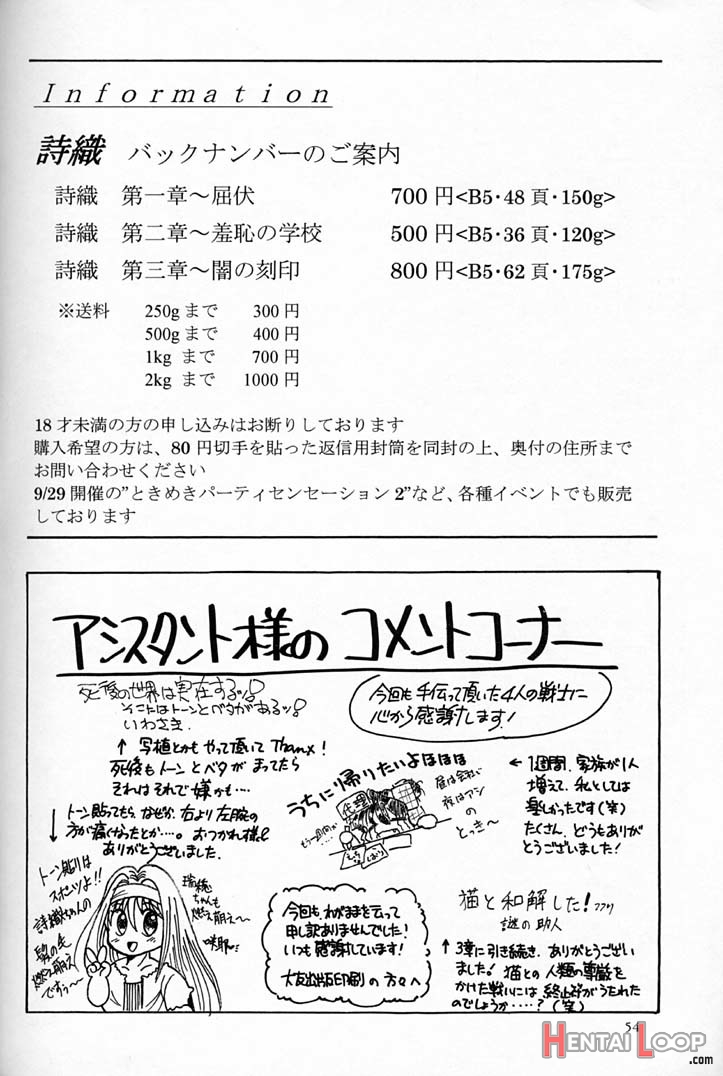 Information
詩織 バックナンバーのご案内
詩織 第一章～屈伏 700円<B5・48頁・150g>
詩織 第二章～羞恥の学校 500円<B5・36頁・120g>
詩織 第三章～闇の刻印 800円<B5・62頁・175g>
※送料 250gまで 300円
500gまで 400円
1kg まで 700円
2kg まで 1000円
18才未満の方の申し込みはお断りしております
購入希望の方は、80円切手を貼った返信用封筒を同封の上、奥付の住所まで
お問い合わせください
9/29開催の”ときめきパーティセンセーション2”など、各種イベントでも販売
しております
アシスタント様の コメントコーナー
死後の世界は実在するッ!
そこにはトーンとベタがあるッ!
いわさき
↑ 写植とかもやって頂いてThanx!
死後もトーンとベタがまってたら
それはそれで嫌かも…
今回も手伝って頂いた4人の戦士に
心から感謝します!
うちに帰りたいよほほほ
昼は会社で
夜はアシ
の
とっき～
← 1週間、家族が1人
増えて、私としては
楽しかったです(笑)
たくさん、どうもありが
とうございました!
↓ トーン貼ってたら、なぜか、右より左腕の
方が痛くなったとか…。おつかれ様&
ありがとうございました。
トーン貼りは
スポーツよ!!
詩織ちゃんの
髪の先
燃え萌え
ですぅ～
瑞穂
ちゃんも
燃え萌え～
咲耶
今回も、わがままを云って
申し訳ありませんでした!
いつも感謝しています!
大友出版印刷の方々へ
猫と和解した!フフリ
謎の助人
↑ 3章に引き続き、ありがとうござい
ました! 猫との人類の尊厳を
かけた戦いには終止符がうたれた
のでしょうか…?(笑)
54
HENTAI LOOP
.com